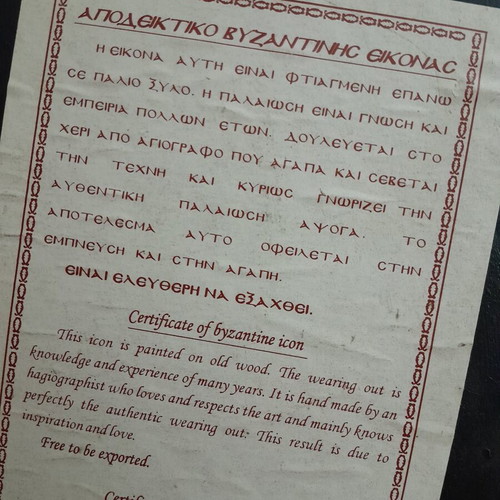 ΑΠΟΔΕΙΚΤΙΚΟ ΒΥΖΑΝΤΙΝΗΣ ΕΙΚΟΝΑΣ
Η ΕΙΚΟΝΑ ΑΥΤΗ ΕΙΝΑΙ ΦΤΙΑΓΜΕΝΗ ΕΠΑΝΩ
ΣΕ ΠΑΛΙΟ ΞΥΛΟ. Η ΠΑΛΑΙΩΣΗ ΕΙΝΑΙ ΓΝΩΣΗ ΚΑΙ
ΕΜΠΕΙΡΙΑ ΠΟΛΛΩΝ ΕΤΩΝ. ΔΟΥΛΕΥΕΤΑΙ ΣΤΟ
ΧΕΡΙ ΑΠΟ ΑΓΙΟΓΡΑΦΟ ΠΟΥ ΑΓΑΠΑ ΚΑΙ ΣΕΒΕΤΑΙ
ΤΗΝ ΤΕΧΝΗ ΚΑΙ ΚΥΡΙΩΣ ΓΝΩΡΙΖΕΙ ΤΗΝ
ΑΥΘΕΝΤΙΚΗ ΠΑΛΑΙΩΣΗ ΑΨΟΓΑ. ΤΟ
ΑΠΟΤΕΛΕΣΜΑ ΑΥΤΟ ΟΦΕΙΛΕΤΑΙ ΣΤΗΝ
ΕΜΠΝΕΥΣΗ ΚΑΙ ΣΤΗΝ ΑΓΑΠΗ.
ΕΙΝΑΙ ΕΛΕΥΘΕΡΗ ΝΑ ΕΞΑΧΘΕΙ.
Certificate of byzantine icon
This icon is painted on old wood. The wearing out is
knowledge and experience of many years. It is hand made by an
hagiographist who loves and respects the art and mainly knows
perfectly the authentic wearing out. This result is due to
inspiration and love.
Free to be exported.